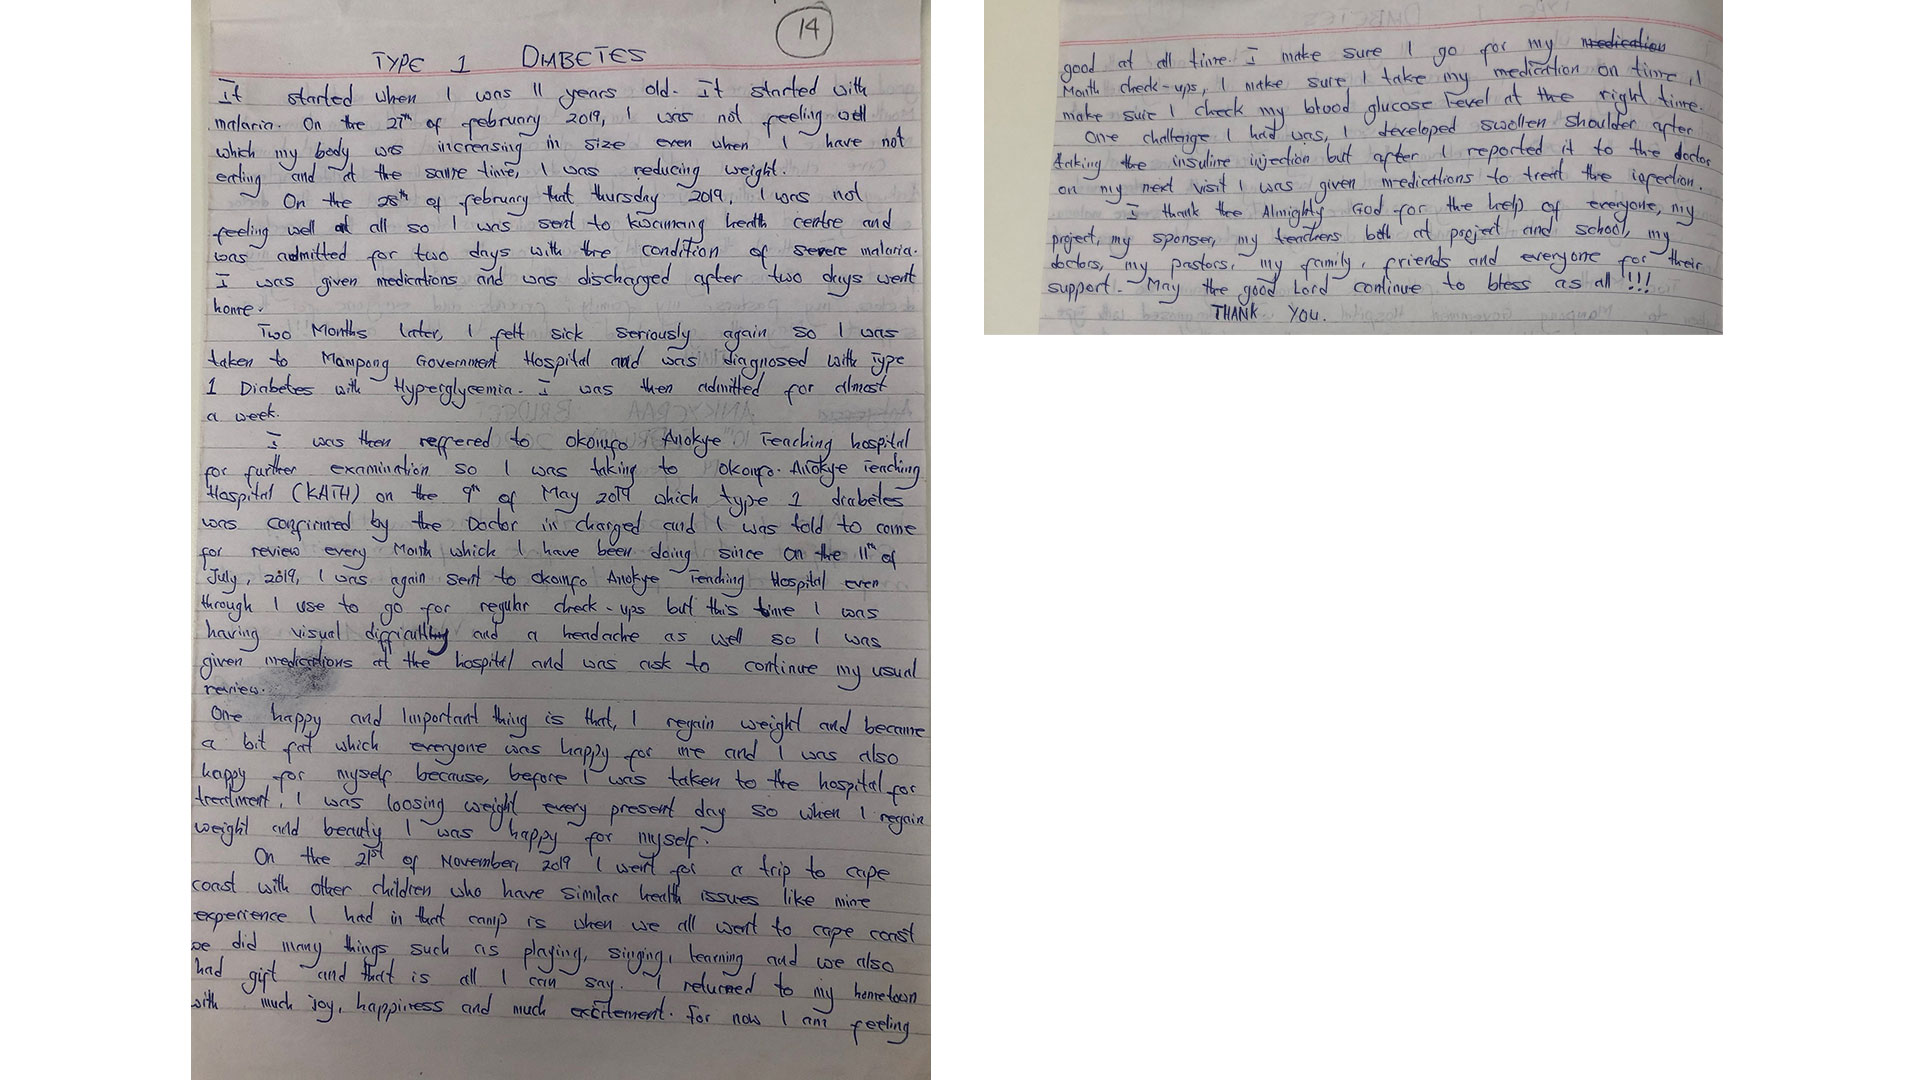 14
TYPE 1 DIABETES
It started when I was 11 years old. It started with
malaria. On the 27th of february 2019, I was not feeling well
which my body was increasing in size even when I have not
eating and at the same time, I was reducing weight.
On the 28th of february that thursday 2019, I was not
feeling well at all so I was sent to kwamang health centre and
was admitted for two days with the condition of severe malaria.
I was given medications and was discharged after two days went
home.
Two Months later, I felt sick seriously again so I was
taken to Mampong Government Hospital and was diagnosed with Type
1 Diabetes with Hyperglycemia. I was then admitted for almost
a week.
I was then reffered to Okomfo Anokye Teaching hospital
for further examination so I was taking to Okomfo Anokye Teaching
Hospital (KATH) on the 9th of May 2019 which type 1 diabetes
was confirmed by the Doctor in charged and I was told to come
for review every Month which I have been doing since on the 11th of
July, 2019, I was again sent to Okomfo Anokye Teaching Hospital even
through I use to go for regular check-ups but this time I was
having visual difficulty and a headache as well so I was
given medications at the hospital and was ask to continue my usual
review.
One happy and Important thing is that, I regain weight and became
a bit fat which everyone was happy for me and I was also
happy for myself because, before I was taken to the hospital for
treatment, I was loosing weight every present day so when I regain
weight and beauty I was happy for myself.
On the 21st of November, 2019 I went for a trip to cape
coast with other children who have similar health issues like mine
experience I had in that camp is when we all went to cape coast
we did many things such as playing, singing, learning and we also
had gift and that is all I can say. I returned to my hometown
with much joy, happiness and much excitement. For now I am feeling
good at all time. I make sure I go for my medication
Month check-ups, I make sure I take my medication on time, I
make sure I check my blood glucose level at the right time.
One challenge I had was, I developed swollen shoulder after
taking the insuline injection but after I reported it to the doctor
on my next visit I was given medications to treat the infection.
I thank the Almighty God for the help of everyone, my
project, my sponser, my teachers both at project and school, my
doctors, my pastors, my family, friends and everyone for their
support. May the good Lord continue to bless as all !!!
THANK YOU.